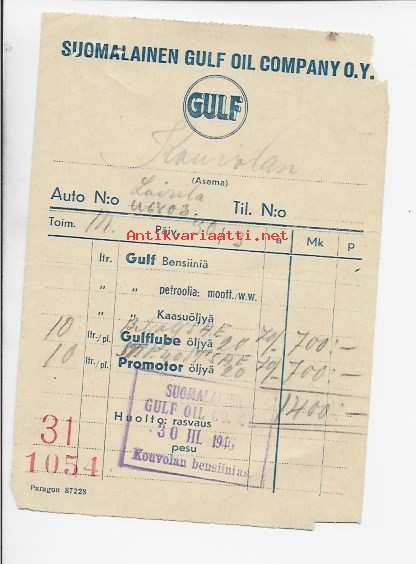 SUOMALAINEN GULF OIL COMPANY O.Y.
GULF
Kouvolan
(Asema)
Auto N:o Til. N:o
Toim. Päiv. Mk p
Antikvariaatti.net
ltr. Gulf Bensiiniä
" " petroolia: moott./w.w.
" Kaasuöljyä
10 ltr./pl. Gulflube öljyä 20 70/ 700:-
10 ltr./pl. Promotor öljyä 20 70/ 700:-
1400:-
SUOMALAINEN
GULF OIL
Huolto: rasvaus
30 III. 1946
pesu
Kouvolan bensiinias
31
1054
Paragon 87228